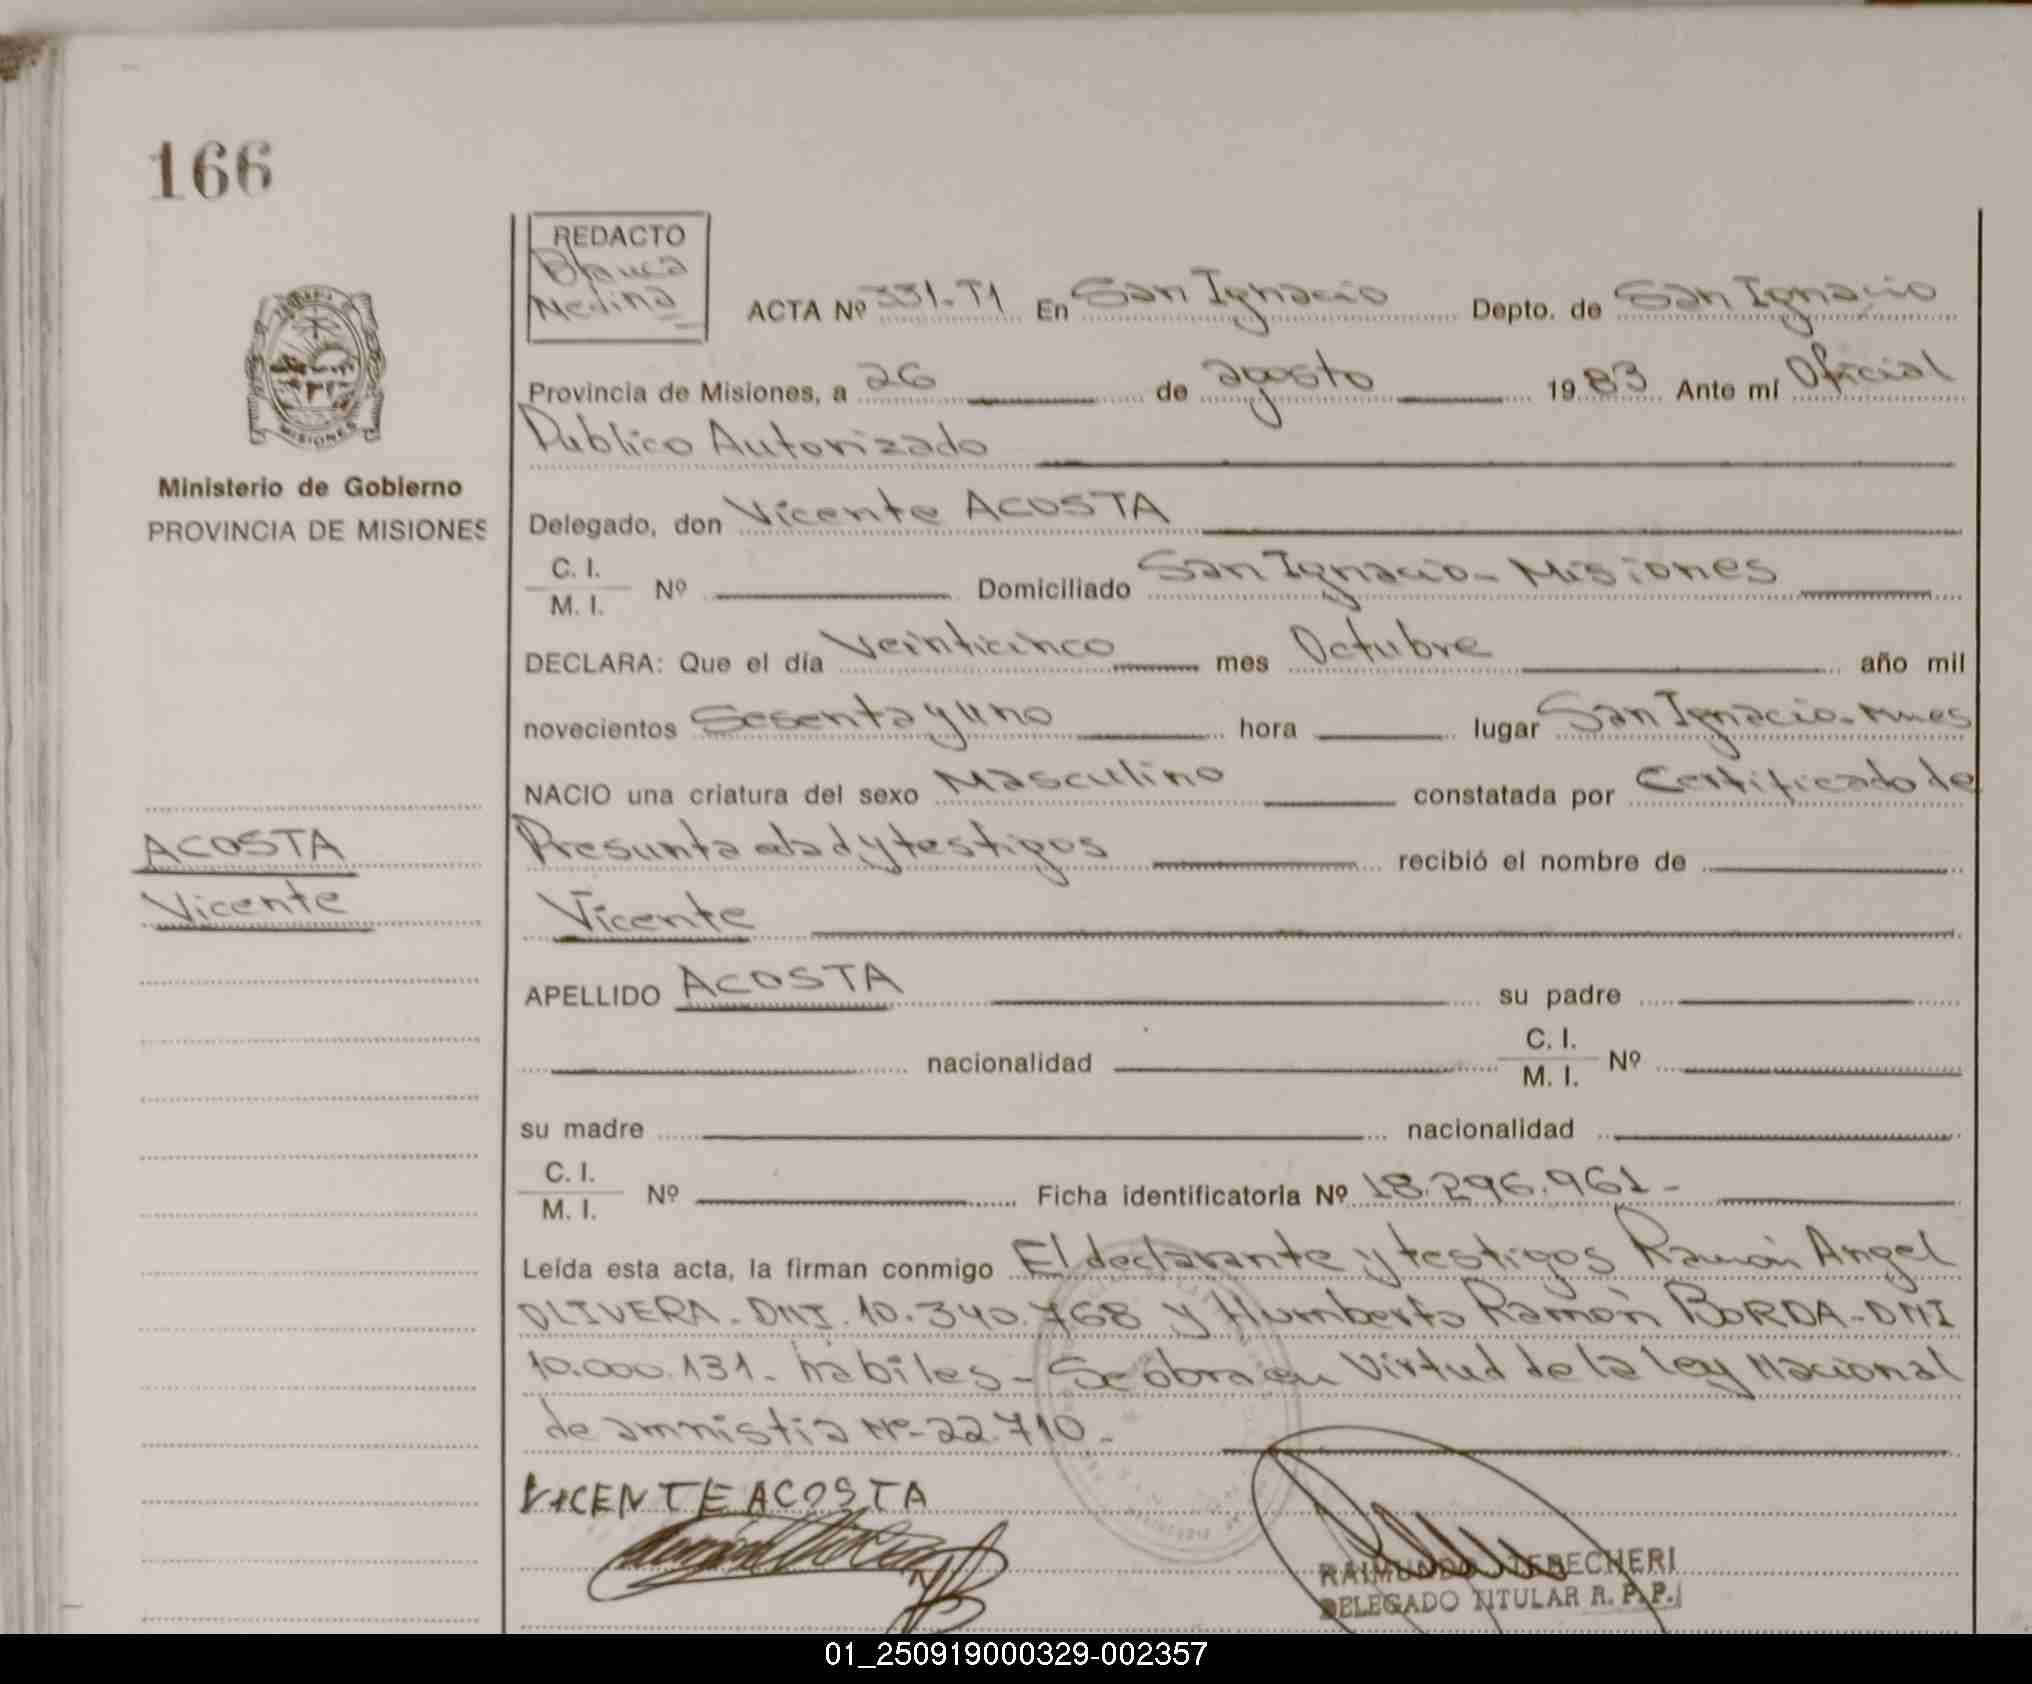 166
REDACTO
Blanca
Medina
ACTA Nº 331-T1 En San Ignacio Depto. de San Ignacio
Provincia de Misiones, a 26 de agosto 1983 Ante mí Oficial
Publico Autorizado
Ministerio de Gobierno
PROVINCIA DE MISIONES
Delegado, don Vicente ACOSTA
C. I.
M. I. Nº Domiciliado San Ignacio - Misiones
DECLARA: Que el día Veinticinco mes Octubre año mil
novecientos Sesenta y uno hora lugar San Ignacio - Mnes
NACIO una criatura del sexo Masculino constatada por Certificado de
ACOSTA
Vicente
Presunta edad y testigos recibió el nombre de
Vicente
APELLIDO ACOSTA su padre
nacionalidad C. I.
M. I. Nº
su madre nacionalidad
C. I.
M. I. Nº Ficha identificatoria Nº 18.296.961-
Leída esta acta, la firman conmigo El declarante y testigos Ramón Angel
OLIVERA - DNI. 10.340.768 y Humberto Ramón BORDA - DNI
10.000.131 - hábiles - Se obra en Virtud de la ley Nacional
de amnistia Nº 22.710.-
VICENTE ACOSTA
RAIMUNDO TEBECHERI
DELEGADO TITULAR R. P. P.
01_250919000329-002357